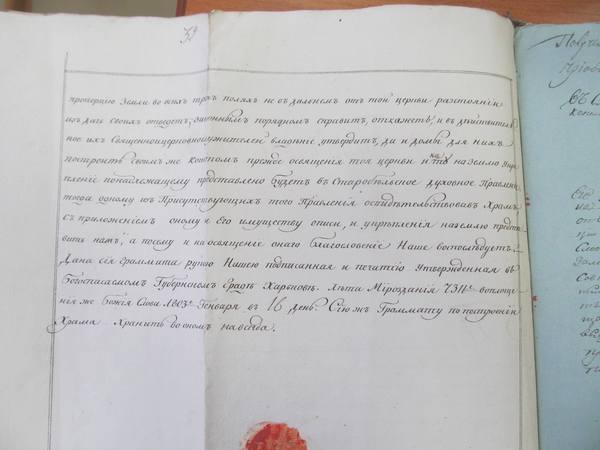 39
пропорцію Земли во всѣхъ трехъ поляхъ не въ далномъ отъ той церкви разстояніи
изъ дачъ своихъ отведетъ, законнымъ порядкомъ справитъ, откажетъ, и въ дѣйствител
ное ихъ Священноцерковнослужителей владѣніе утвердитъ, да и домы для нихъ
построитъ своимъ же коштомъ прежде освященія тоя церкви и на то на Землю Укрѣ
пленіе понадлежащему представлено будетъ въ Старобѣльское духовное Правленіе,
тогда одному изъ Присутствующихъ того Правленія освидѣтельствовавъ Храмъ
съ приложеніемъ оному и Его имуществу описи, и укрѣпленія на землю предста
вить намъ, а посему и на освященіе онаго благословеніе Наше воспослѣдуетъ.
Дана сія грамматa рукою Нашею подписанная и печатію Утвержденная въ
Богоспасаемомъ Губернскомъ Градѣ Харьковѣ. Лѣта Мірозданія 7311е воплоще
нія же Божія Слова 1803е Генваря въ 16 день. Сію жъ Граммату по построеніи
Храма Хранить во ономъ навсегда.
Получ
въ